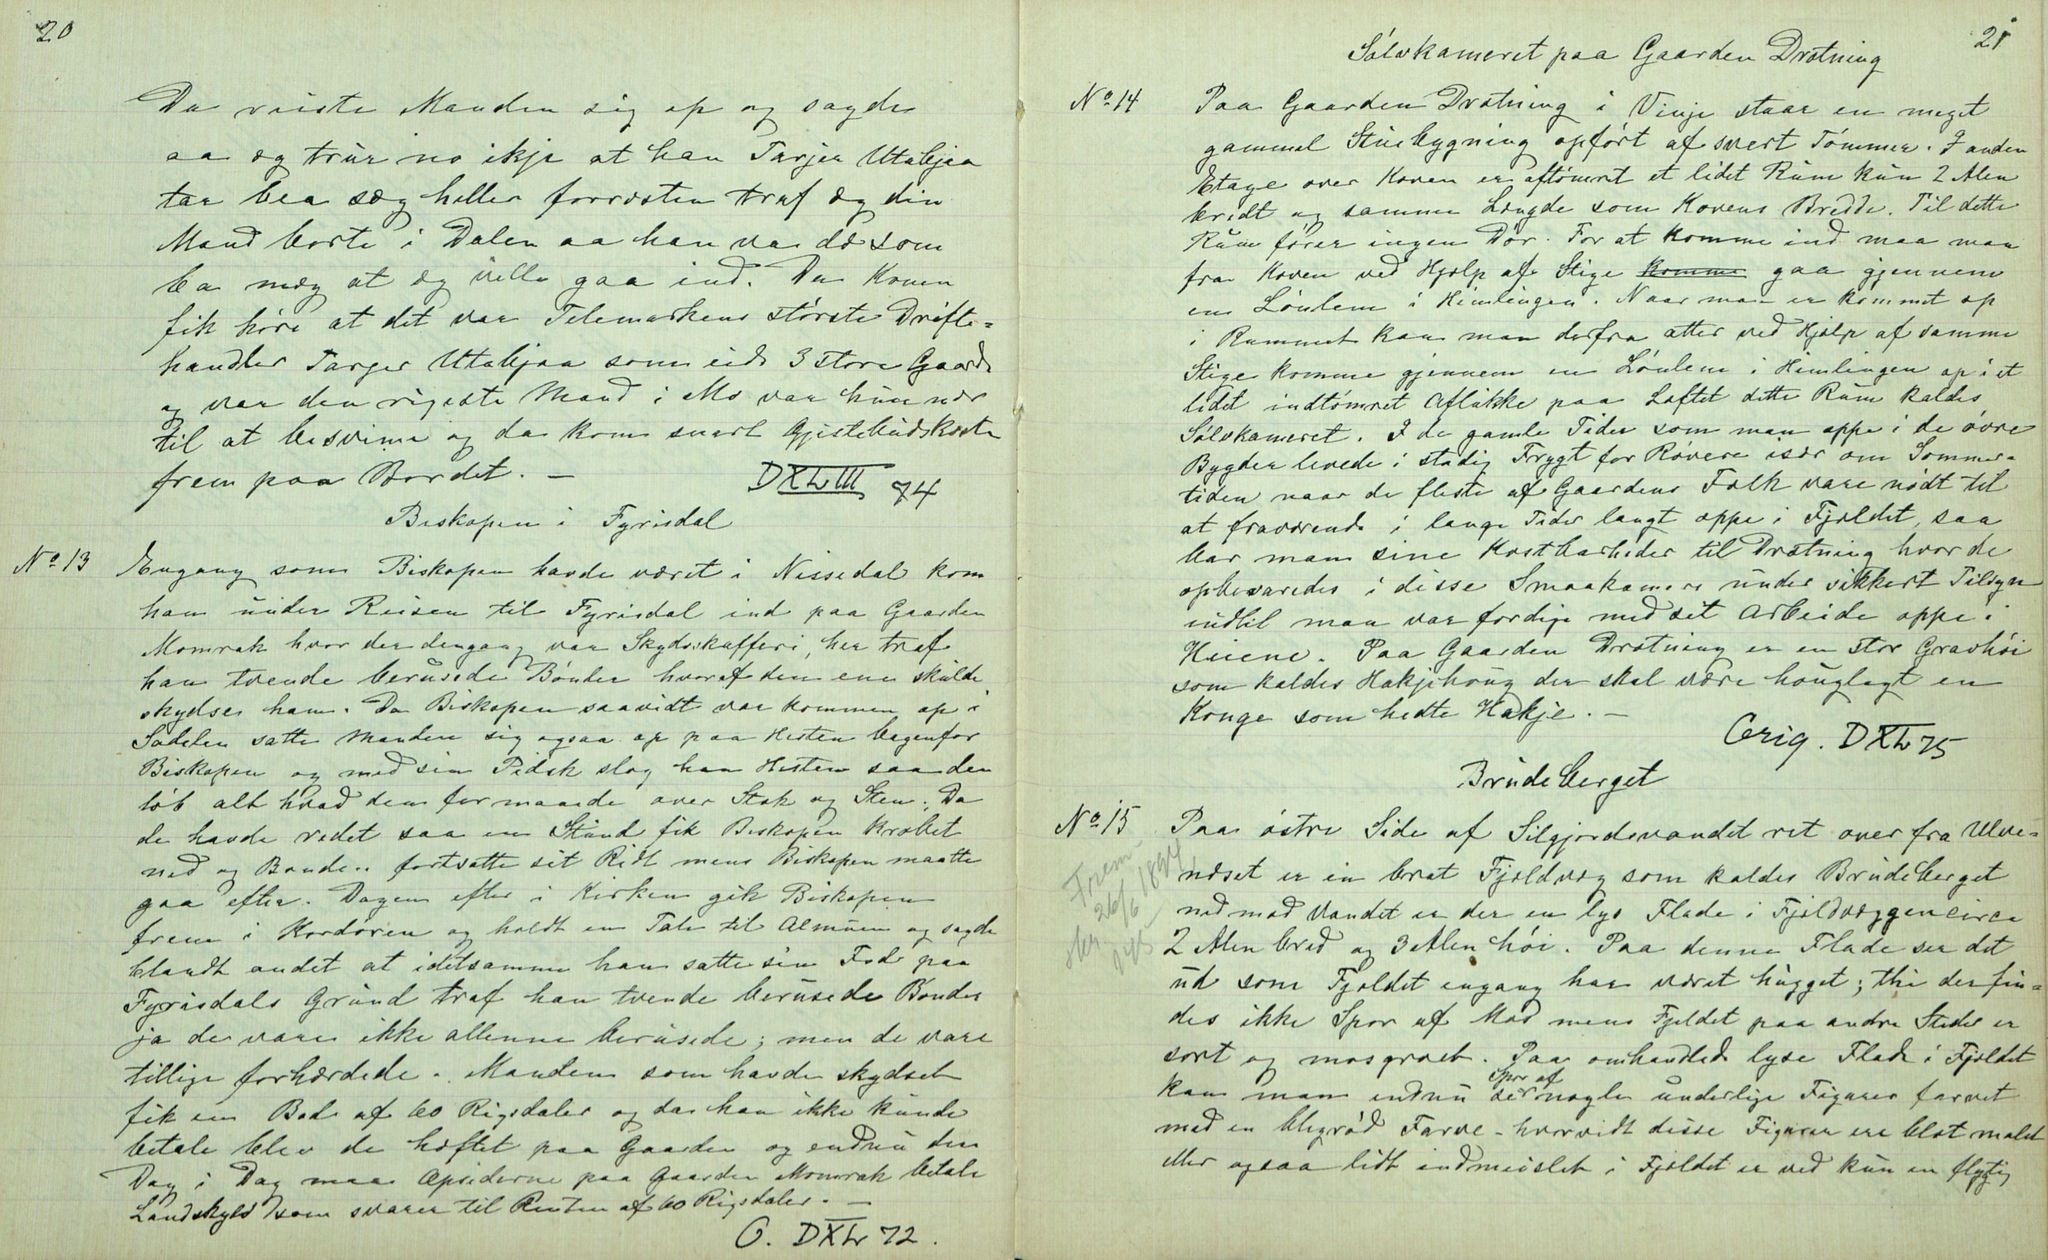 20
Da reiste Manden sig op og sagde
aa eg trur no ikje at han Tarjer Utabjaa
tar bea sæg heller forresten traf eg din
Mand borte i Dalen aa han va dæ som
ba mæg at eg ville gaa ind. Da Konen
fik høre at det var Telemarkens største Drifte-
handler Tarjer Utabjaa som eide 3 store Gaarde
og var den rigeste Mand i Mo var hun nær
til at besvime og da kom snart Gjestebudskosten
frem paa Bordet. —
DXLIII 74
Biskopen i Fyrisdal
No 13 Engang som Biskopen havde været i Nissedal kom
han under Reisen til Fyrisdal ind paa Gaarden
Momrak hvor der dengang var Skydsskafferi, her traf
han tvende berusede Bønder hvoraf den ene skulde
skydse ham. Da Biskopen saavidt var kommen op i
Sadelen satte Manden sig ogsaa op paa Hesten bagenfor
Biskopen og med sin Pidsk slog han Hesten saa den
løb alt hvad den formaaede over Stok og Sten. Da
de havde redet saa en Stund fik Biskopen krabet
ned og Bonden fortsatte sit Ridt mens Biskopen maatte
gaa efter. Dagen efter i Kirken gik Biskopen
frem i Kordøren og holdt en Tale til Almuen og sagde
blandt andet at idetsamme han satte sin Fod paa
Fyrisdals Grund traf han tvende berusede Bønder
ja de vare ikke allenne berusede; men de vare
tillige forhærdede. Manden som havde skydset
fik en Bod af 60 Rigsdaler og da han ikke kunde
betale blev de hæftet paa Gaarden og endnu den
Dag i Dag maa Opsiderne paa Gaarden Momrak betale
Landskyld som svarer til Renten af 60 Rigsdaler. —
O. DXL 72.
21
Sølvkameret paa Gaarden Drotning
No 14 Paa Gaarden Drotning i Vinje staar en meget
gammel Stuebygning opført af svert Tømmer. I anden
Etage over Koven er aftømret et lidet Rum kun 2 Alen
bredt og samme Længde som Kovens Bredde. Til dette
Rum fører ingen Dør. For at komme ind maa man
fra Koven ved Hjælp af Stige komme gaa gjennem
en Lønlem i Himlingen. Naar man er kommet op
i Rummet kan man derfra atter ved Hjælp af samme
Stige komme gjennem en Lønlem i Himlingen op i et
lidet indtømret Aflukke paa Loftet dette Rum kaldes
Sølvkameret. I de gamle Tider som man oppe i de øvre
Bygder levede i stadig Frygt for Røvere især om Sommer-
tiden naar de fleste af Gaardens Folk vare nødt til
at fraværende i lange Tider langt oppe i Fjeldet, saa
bar man sine Kostbarheder til Drotning hvor de
opbevaredes i disse Smaakamere under sikkert Tilsyn
indtil man var fordige med sit Arbeide oppe i
Heiene. Paa Gaarden Drotning er en stor Gravhøi
som kaldes Hakjehoug der skal være houglagt en
Konge som hedte Hakje. —
Orig. DXL 75
Brudeberget
No 15 Paa østre Side af Silgjordsvandet ret over fra Ulve-
næset er en brat Fjeldvæg som kaldes Brudeberget
ned mod Vandet er der en lys Flade i Fjeldvæggen circa
2 Alen bred og 3 Alen høi. Paa denne Flade ser det
ud som Fjeldet engang har været hugget; thi der fin-
des ikke Spor af Mos mens Fjeldet paa andre Steder er
sort og mosgroet. Paa omhandlede lyse Flade i Fjeldet
kan man endnu se Spor af nogle underlige Figurer farvet
med en blegrød Farve - hvorvidt disse Figurer ere blot malet
eller ogsaa lidt indmeislet i Fjeldet er ved kun en flygtig
26/6 1894